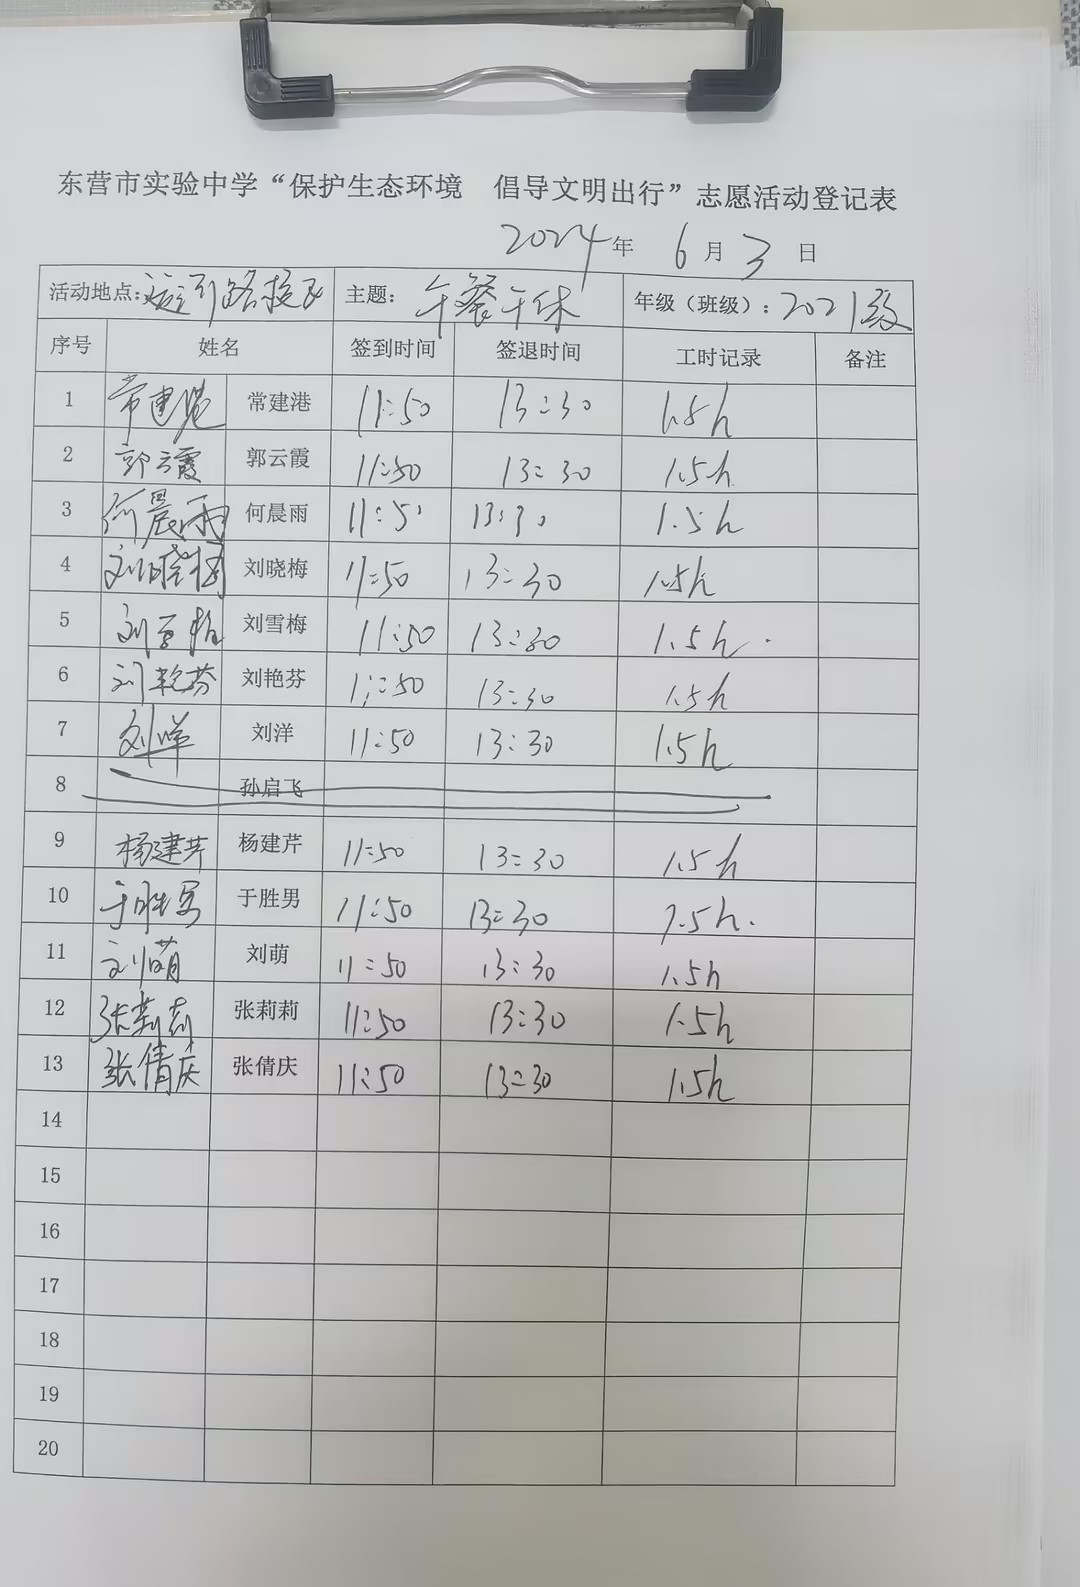 东营市实验中学“保护生态环境 倡导文明出行”志愿活动登记表
2024年 6月 3日
活动地点: 路校区 主题: 午餐午休 年级（班级）: 2021级
序号 姓名 签到时间 签退时间 工时记录 备注
1 常建港 常建港 11:50 13:30 1.5h
2 郭云霞 郭云霞 11:50 13:30 1.5h
3 何晨雨 何晨雨 11:50 13:30 1.5h
4 刘晓梅 刘晓梅 11:50 13:30 1.5h
5 刘雪梅 刘雪梅 11:50 13:30 1.5h.
6 刘艳芬 刘艳芬 11:50 13:30 1.5h
7 刘洋 刘洋 11:50 13:30 1.5h
8 孙启飞
9 杨建芹 杨建芹 11:50 13:30 1.5h
10 于胜男 于胜男 11:50 13:30 1.5h.
11 刘萌 刘萌 11:50 13:30 1.5h
12 张莉莉 张莉莉 11:50 13:30 1.5h
13 张倩庆 张倩庆 11:50 13:30 1.5h
14
15
16
17
18
19
20